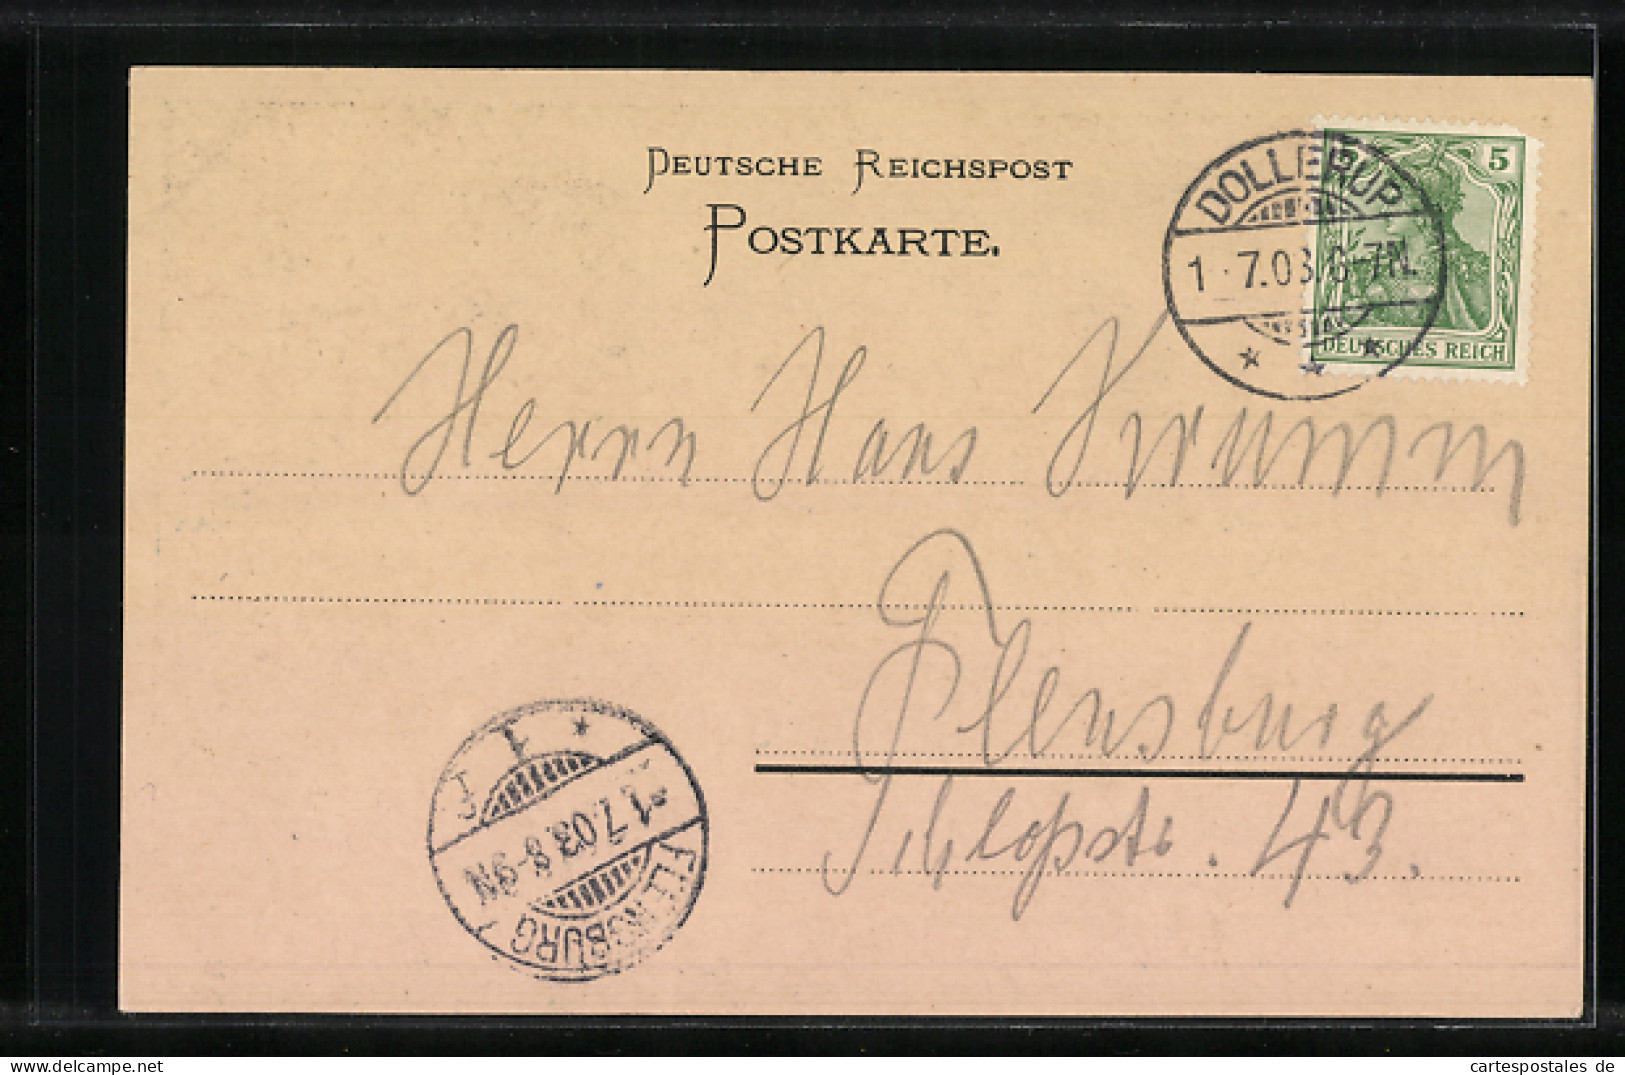 DEUTSCHE REICHSPOST
POSTKARTE.
DOLLERUP
1.7.03.6-7N.
5
DEUTSCHES REICH
Herrn Hans Krumm
Flensburg
Schloßstr. 43.
FLENSBURG
1.7.03.8-9N
1
cartespostales de